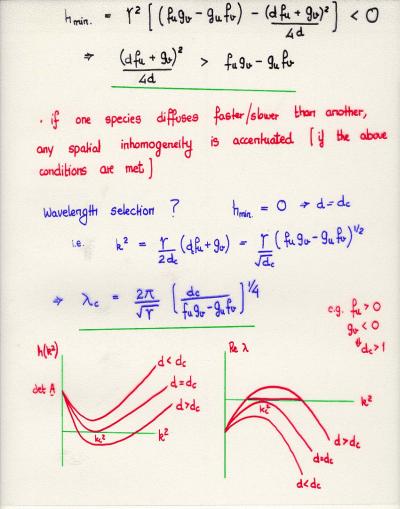 h min. = γ² [ (fu gv - gu fv) - (dfu + gv)²/4d ] < 0
⇒ (dfu + gv)²/4d > fu gv - gu fv
· if one species diffuses faster/slower than another,
any spatial inhomogeneity is accentuated [if the above
conditions are met]
Wavelength selection ? h min. = 0 ⇒ d = dc
i.e. k² = γ/2dc (dcfu + gv) = γ/√dc (fu gv - gu fv)^1/2
⇒ λc = 2π/√γ [ dc/fu gv - gu fv ]^1/4
e.g. fu > 0
gv < 0
dc > 1
h(k²)
det A
d < dc
d = dc
d > dc
kc²
k²
Re λ
kc²
k²
d > dc
d = dc
d < dc